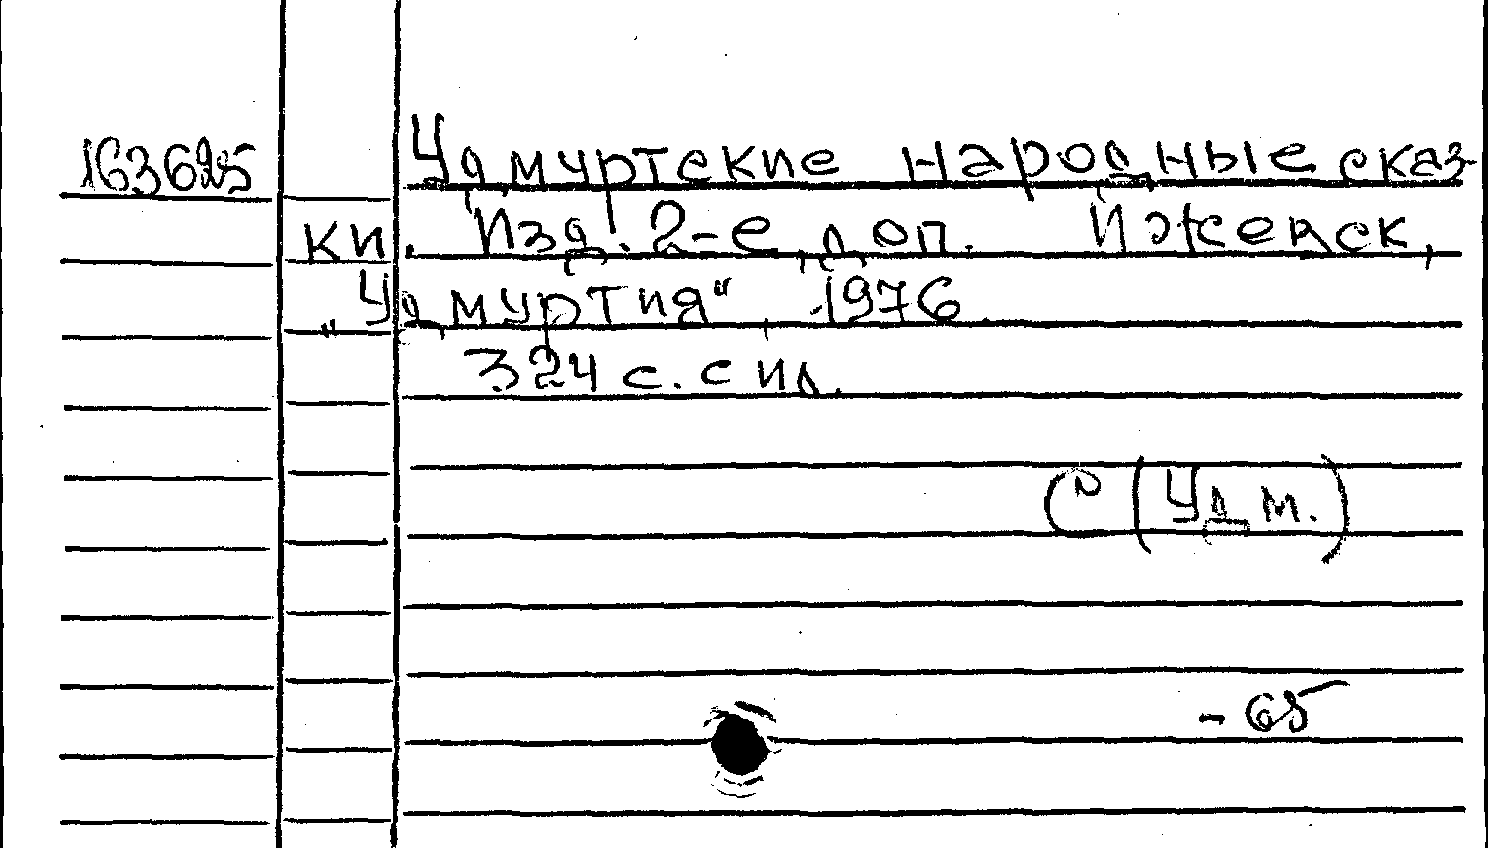 163625 Удмуртские народные сказ-
ки. Изд. 2-е, доп. Ижевск,
„Удмуртия", 1976.
324 с. с ил.
С (Удм.)
- 65